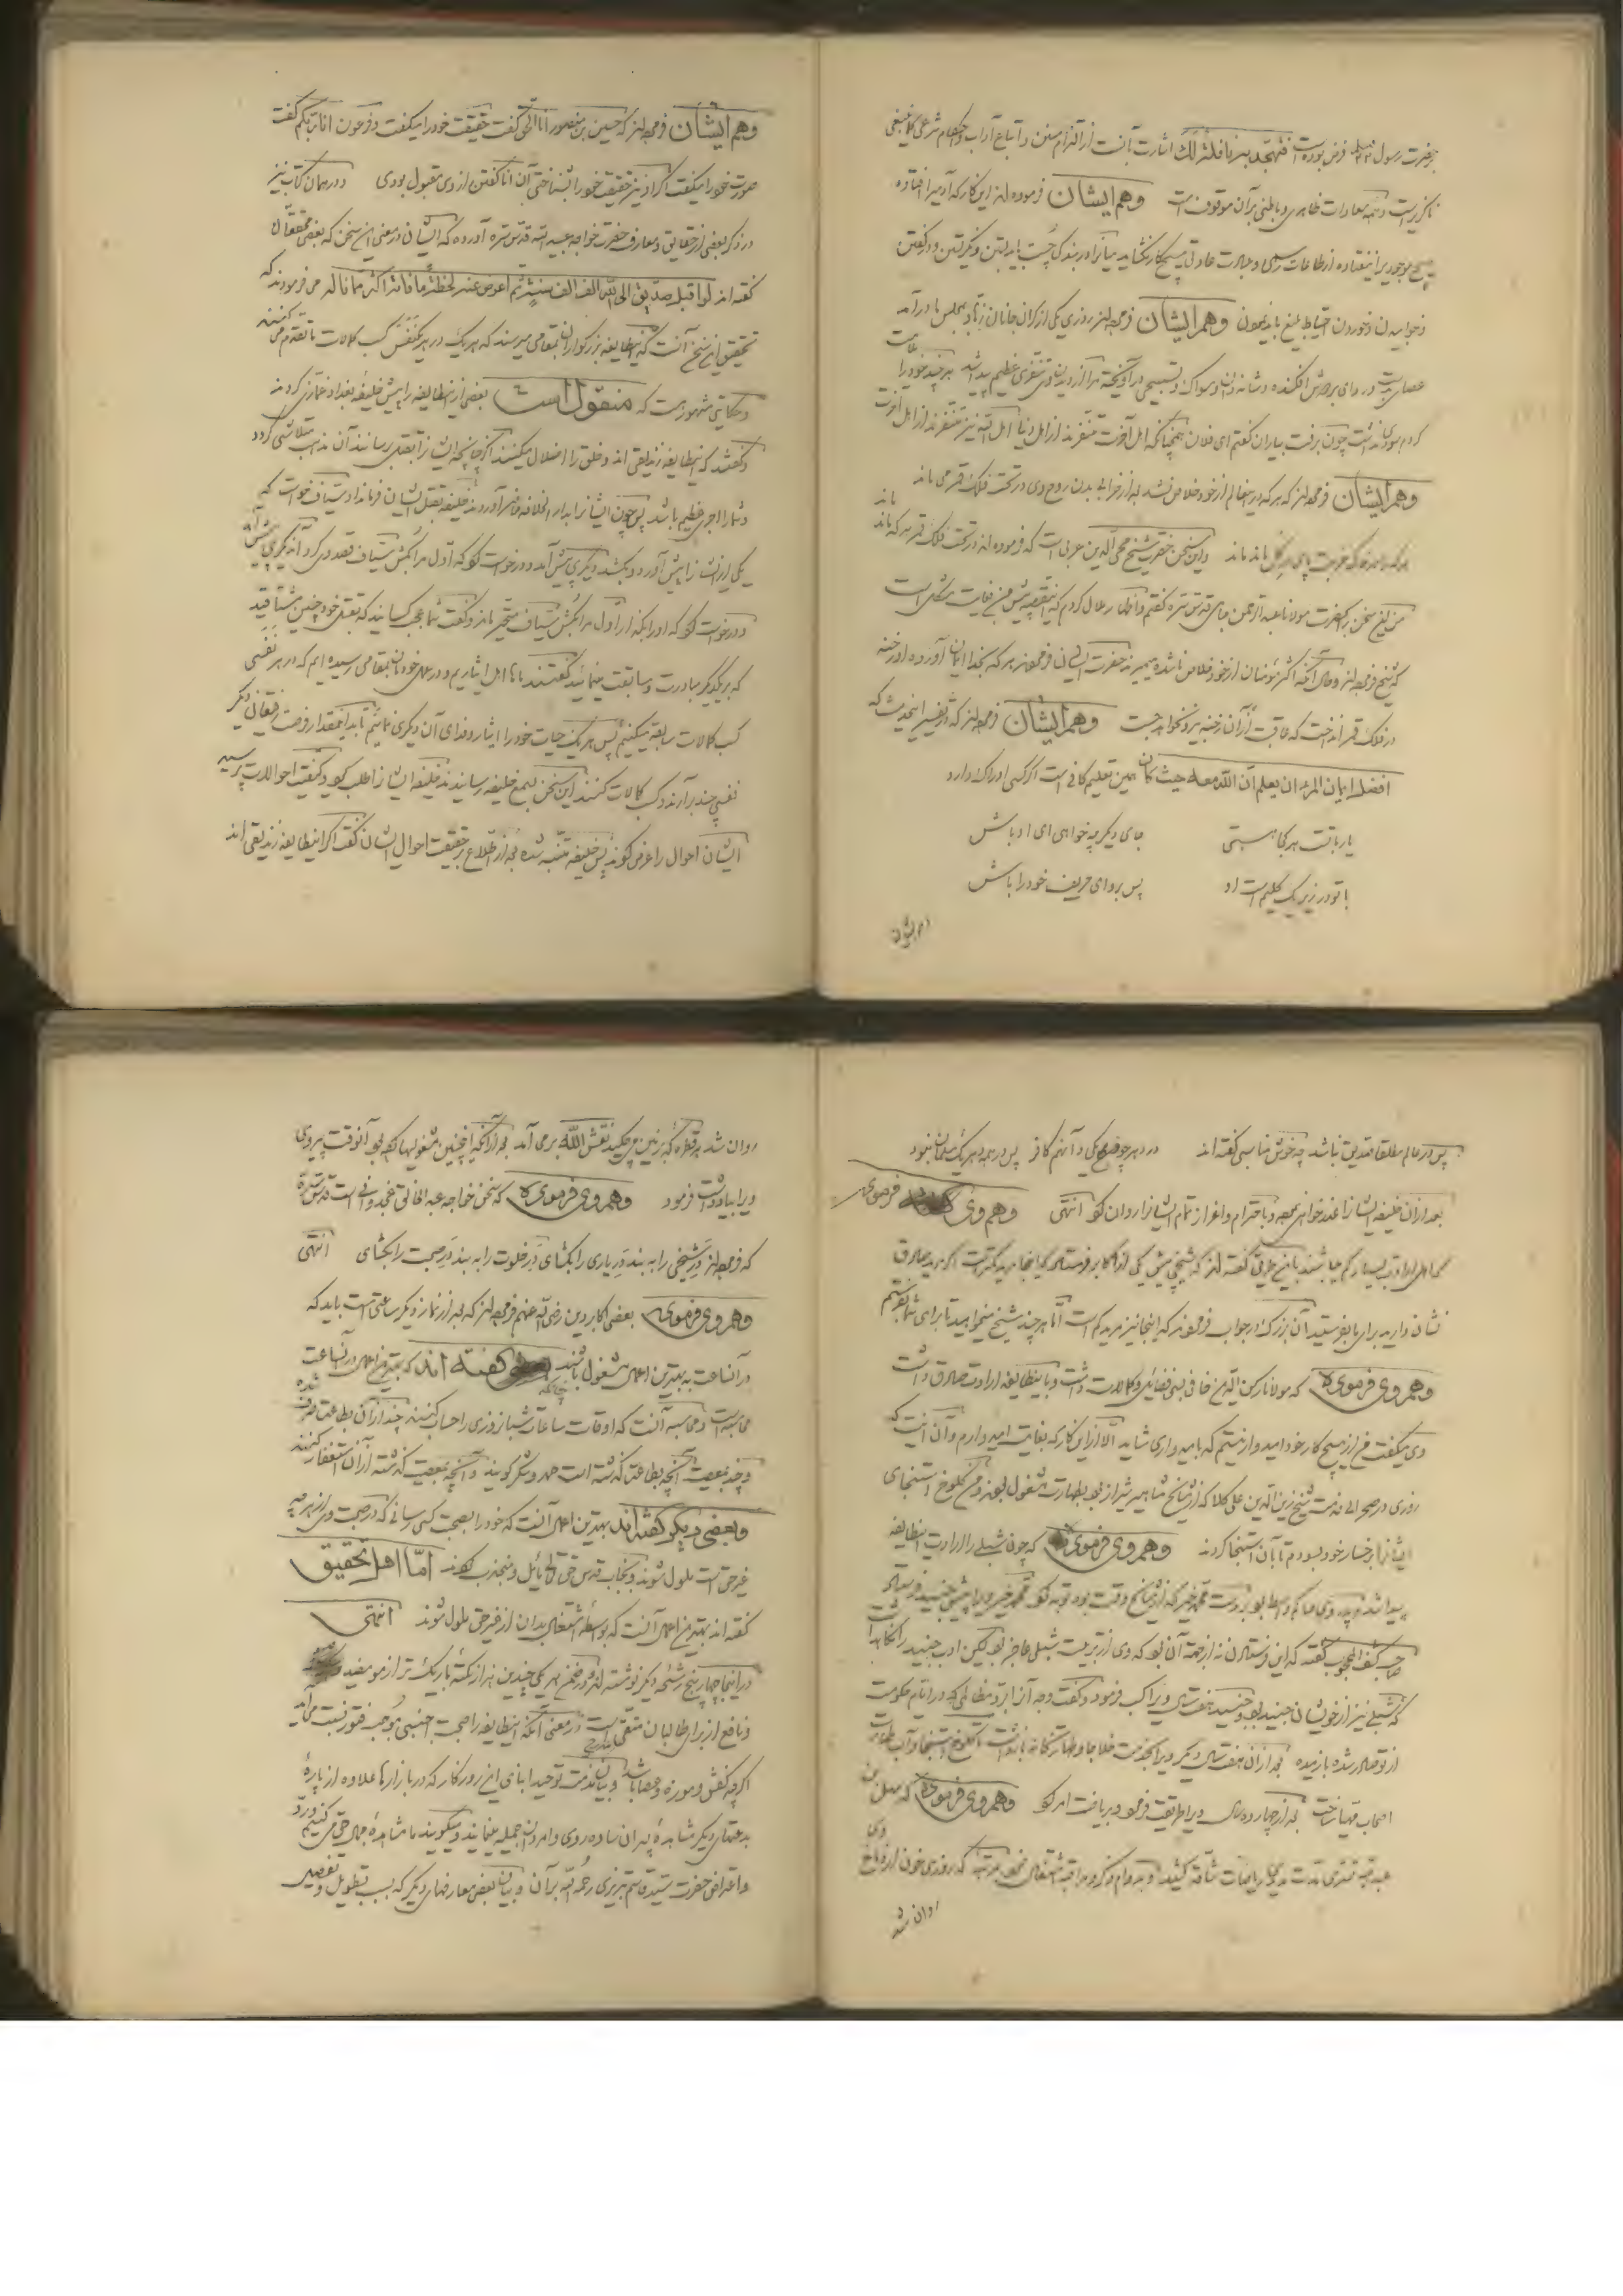 بر حضرت رسول فرض بوده است فتهجد به نافلة لك اشارت بآنست از التزام سنن و اتباع آداب و احکام شرعی کما ینبغی
ناگزیرست و همه سعادات ظاهری و باطنی بر آن موقوف است وهم ایشان فرموده اند این کار که آدمیرا افتاده
هیچ موجودیرا نیفتاده از طاعات رسمی و عبادت عادتی هیچ کار نگشاید میانرا در بندگی چست باید بستن و نگریستن و در گفتن
و خوابیدن و خوردن احتیاط بلیغ باید نمود وهم ایشان فرموده اند روزی یکی از گران جانان زهاد بمجلس ما در آمد
عصا بدست و ردای بر دوش افکنده و شانه دان و مسواک و تسبیحی در آویخته مرا از دیدن وی تنفری عظیم پیدا شد هر چند خود را ملامت
کردم سودی نداشت چون برفت بیاران گفتم ای فلان همچنانکه اهل آخرت متنفرند از اهل دنیا اهل الله نیز متنفرند از اهل آخرت
وهم ایشان فرموده اند که هر که درین عالم از خود خلاص نشد بعد از خرابی بدن روح وی در تحت فلک قمر می ماند
ماند و این سخن حضرت شیخ محی الدین عربی است که فرموده اند در تحت فلک قمر هر که ماند ماند
من این سخن را بحضرت مولانا عبد الرحمن جامی قدس سره گفتم و اظهار ملال کردم که این قضیه پیش من بغایت مشکل است
که شیخ فرموده اند و حال آنکه اکثر مؤمنان از خود خلاص ناشده میمیرند حضرت ایشان فرمودند هر که بخدا ایمان آورده او رخنه
در فلک قمر انداخت که عاقبت از آن رخنه بیرون خواهد جست وهم ایشان فرموده اند که در تفسیر این حدیث که
افضل ایمان المرء ان یعلم ان الله معه حیث کان همین تعلیم کافی است اگر کسی ادراک دارد
یار با تست هر کجا هستی جای دیگر چه خواهی ای اوباش
با تو در زیر یک گلیم است او پس برو ای حریف خود را باش
وهم ایشان
وهم ایشان فرموده اند که حسین بن منصور انا الحق گفت حقیقت خود را میگفت و فرعون انا ربکم گفت
صورت خود را میگفت اگر او نیز حقیقت خود را بشناختی آن انا گفتن از وی مقبول بودی و در همان کتاب نیز
در ذکر بعضی از حقایق و معارف حضرت خواجه عبید الله قدس سره آورده که ایشان در معنی این سخن که بعضی محققان
گفته اند لو اقبل صدیق الی الله الف الف سنة ثم اعرض عنه لحظة ما فاته اکثر مما ناله می فرمودند که
تحقیق این سخن آنست که این طایفه بزرگواران بمقامی میرسند که هر یک در هر یک نفس کسب کمالات ما تقدم می کنند
و حکایتی مشهور است که منقول است بعضی از این طایفه را پیش خلیفه بغداد غمازی کردند
و گفتند که این طایفه زندیقی اند و خلق را اضلال میکنند اگر چنانچه ایشانرا بقتل رسانند آن مذهب متلاشی گردد
و شما را اجری عظیم باشد پس چون ایشانرا بدار الخلافه حاضر آوردند خلیفه بقتل ایشان فرمان داد سیاف خواست که
یکی از ایشانرا پیش آورد و بکشد دیگری پیش آمد و درخواست کرد که اول مرا بکش سیاف قصد وی کرد آن دیگری پیش آمد
و درخواست کرد که او را بگذار اول مرا بکش سیاف متحیر ماند و گفت شما عجب کسانید که بقتل خود چنین مشتاقید
که بر یکدیگر مبادرت و مسابقت مینمائید گفتند ما اهل ایثاریم و در عمل خود بمقامی رسیده ایم که در هر نفسی
کسب کمالات سابقه میکنیم پس هر یک حیات خود را ایثار و فدای آن دیگری نمائیم تا بدین مقدار فرصت رفیقان دیگر
نفسی چند برآرند و کسب کمالات کنند این سخن بسمع خلیفه رسانیدند خلیفه ایشانرا طلب کرد و کیفیت احوالات پرسید
ایشان احوال را عرض کردند پس خلیفه متنبه شده بعد از اطلاع بر حقیقت احوال ایشان گفت اگر این طایفه زندیقی اند
پس در عالم مطلقا صدیق نباشد چه خوش مناسبی گفته اند در دهر چو من یکی و آنهم کافر پس در همه دهر یک مسلمان نبود
بعد از آن خلیفه ایشانرا عذر خواهی نموده و باحترام و اعزاز تمام ایشانرا روان کرد انتهی وهم وی فرموده
اکابر فرستاده که اینجا مرید کمتر است اگر مرید صادق
نشان دارید برای ما بفرستید آن بزرگ در جواب فرمود که اینجا نیز مرید کم است اما هر چند شیخ میخواهید تا برای شما بفرستم
وهم وی فرموده که مولانا رکن الدین خافی بسی فضایل و کمالات داشت و باین طایفه ارادت صادق داشت
وی میگفت من از هیچ کار خود امیدوار نیستم که بامیدواری شاید الا از این کار که بغایت امیدوارم و آن اینست که
روزی در صحرا بخدمت شیخ زین الدین علی کلا که از مشایخ مشاهیر شیراز بود بطهارت مشغول بودند و من کلوخ استنجای
ایشانرا بر رخسار خود بسودم تا بآن استنجا کردند وهم وی فرموده که چون شبلی را ارادت این طایفه
پیدا شد بدست محمد خیر که از مشایخ وقت بود توبه کرد محمد خیر ویرا پیش جنید فرستاد
صاحب کشف المحجوب گفته که این فرستادن نه از جهت آن بود که وی از تربیت شبلی عاجز بود لیکن ادب جنید را نگاهداشت
که شبلی نیز از خویشان جنید بود و جنید هفت سال ویرا کسب فرمود و گفت وجه آنرا برد مظالمی که در ایام حکومت
از تو صادر شده باز بده بعد از آن هفت سال دیگر ویرا بخدمت خلا جا و طهارتخانه بازداشت تا کلوخ استنجا و آب طهارت
اصحاب مهیا ساخت بعد از چهارده سال ویرا طریقت فرمود و بریاضت امر کرد وهم وی فرموده که سهل بن
عبد الله تستری مدت مدید ریاضات شاقه کشید و بدوام ذکر و مراقبه اشتغال نمود بمرتبه که روزی خون از دماغ وی
روان شد
روان شد هر قطره که بر زمین می چکید نقش الله بر می آمد بعد از آنکه اینچنین مشغولیها کرده بود آنوقت پیر وی
ویرا بیادداشت فرمود وهم وی فرموده که سخن خواجه عبد الخالق غجدوانی است قدس سره
که فرموده اند در شیخی را به بند در یاری را بگشای در خلوت را به بند در صحبت را بگشای انتهی
وهم وی فرموده بعضی اکابر دین رضی الله عنهم فرموده اند که بعد از نماز دیگر ساعتی است باید که
در آنساعت به بهترین اعمال مشغول باشند بعضی گفته اند که بهترین اعمال در آنساعت
محاسبه است و محاسبه آنست که اوقات ساعات شبانروزی را حساب کنند که چند از آن بطاعت صرف شده
و چند بمعصیت آنچه بطاعت گذشته است حمد و شکر گویند و آنچه بمعصیت گذشته از آن استغفار کنند
وبعضی دیگر گفته اند بهترین اعمال آنست که خود را بصحبت کسی رسانی که در صحبت وی از هر چه
غیر حق است ملول شوند و بجناب قدس حق تعالی مایل و منجذب گردند اما اهل تحقیق
گفته اند بهترین اعمال آنست که بواسطه اشتغال بدان از غیر حق ملول شوند انتهی
در اینجا چهار پنج رشحه دیگر نوشته اند و در ضمن هر یکی چندین هزار نکته باریکتر از مو مفید
و نافع از برای طالبان متقی است در معنی آنکه این طایفه را صحبت اجنبی موجب فتور نسبت می آید
اگر چه کفش و موزه و عصا باشد و بیان مذمت توحید ابنای این روزگار که در بازارها علاوه از پاره
بدعتهای دیگر مشاهده پسران ساده روی و امردان جمیله مینمایند و میگویند ما مشاهده جمال حق می کنیم
و اعتراض حضرت سید قاسم تبریزی رحمه الله بر آن و بیان بعض معارفهای دیگر که بسبب تطویل و تفصیل